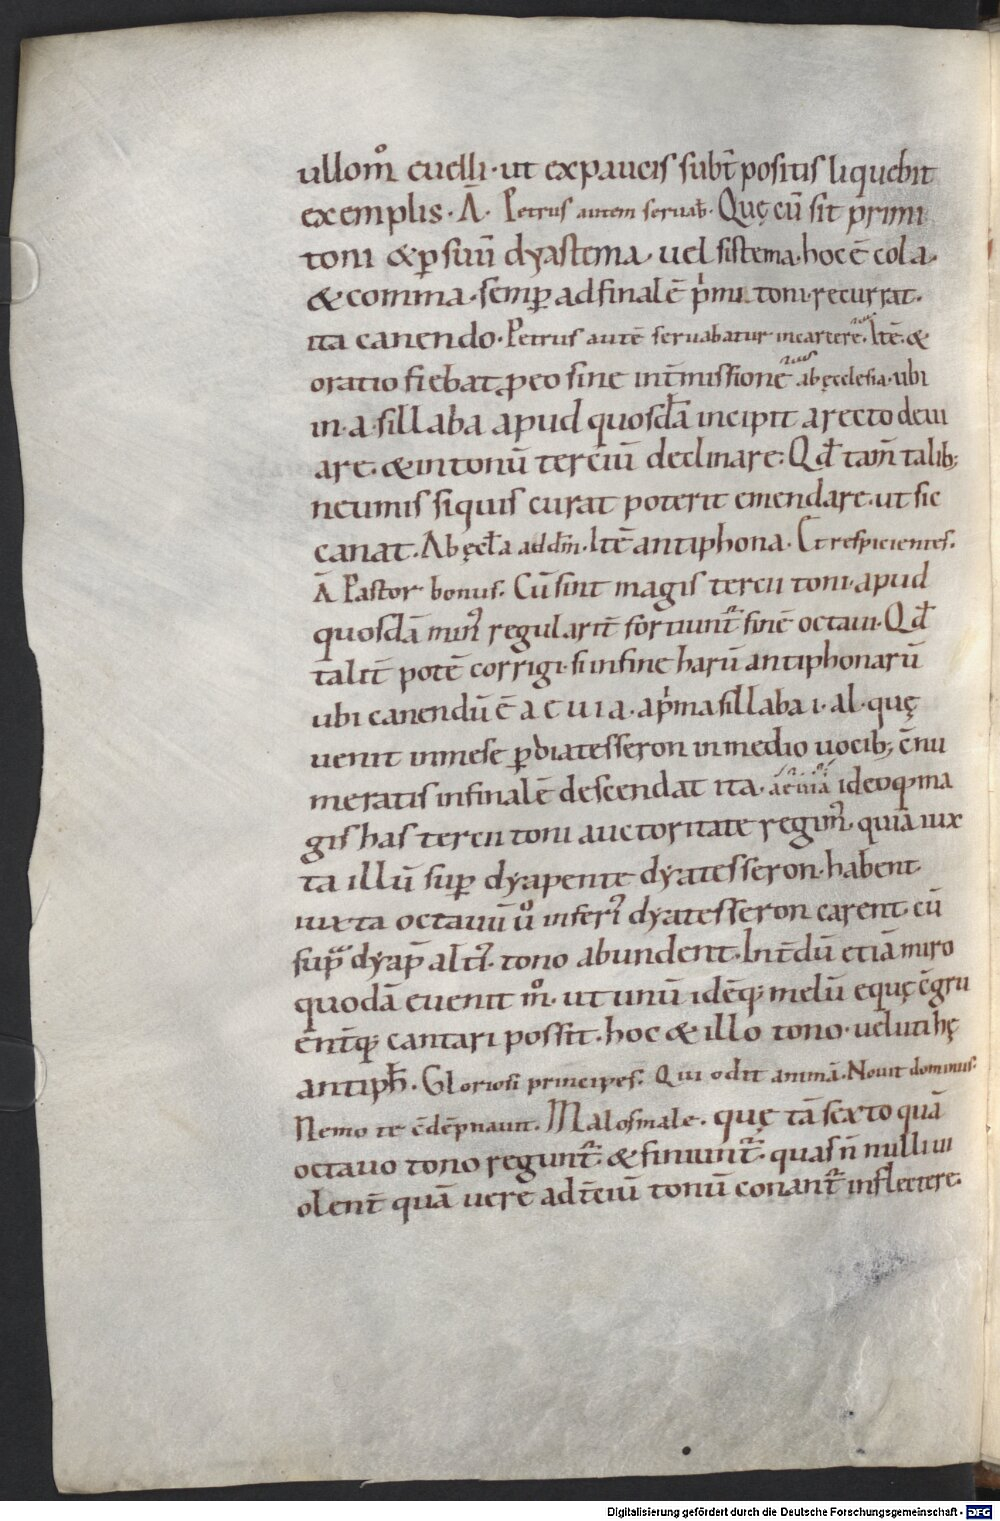 ullom̊ euelli· ut ex paucis subt̄ positis liquebit
exemplis· Ā· Petrus autem seruab̄· Quę cū sit primi
toni & ꝑ suū dyastema· uel sistema· hoc ē cola·
& comma· semꝑ ad finalē pͥmi toni recurrat·
ita canendo· Petrus autē seruabatur in carcere· Itē· &
oratio fiebat ꝓ eo sine int̄missione ab ęcclesia· ubi
in· a· sillaba apud quosdā incipit a recto deui
are· & in tonū terciū declinare· Qđ tam̄ talib;
neumis siquis curat poterit emendare· ut sic
canat· Ab ęcl̄a ad dm̄· Itē antiphona· Et respicientes·
Ā Pastor bonus· Cū sint magis tercii toni· apud
quosdā min᷒ regularit̄ sortiunt᷑ finē octaui· Qđ
talit̄ potē corrigi· si in fine harū antiphonarū
ubi canendū ē a e u i a· a pͥma sillaba i· al· quę
uenit in mese ꝑ diatesseron in medio uocib; ēnu
meratis in finalē descendat ita· aeuia ideoq; ma
gis has tercii toni auctoritate regim᷒· quia iux
ta illū suꝑ dyapente dyatesseron habent
iuxta octauū ů inferi᷒ dyatesseron carent· cū
supͣ dyap̄ alti᷒· tono abundent· Int̄dū etiā miro
quodā euenit m̊· ut unū idēq; melū equę c̄gru
ent̄q; cantari possit· hoc & illo tono· ueluti hę
antiph̄· Gloriosi principes· Qui odit animā· Nouit dominus·
Nemo te c̄dēpnauit· Malos male· quę tā sexto quā
octauo tono regunt᷑· & finiunt᷑· quas n̄nulli ui
olent̄ quā uere ad t̄ciū tonū conant᷑ inflectere·
Digitalisierung gefördert durch die Deutsche Forschungsgemeinschaft - DFG